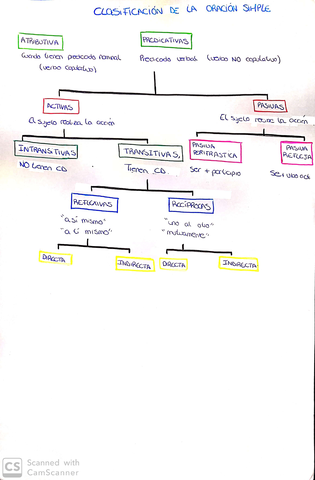 CLASIFICACIÓN DE LA ORACIÓN SIMPLE
ATRIBUTIVA
PREDICATIVAS
Cuando tienen predicado nominal
(verbo copulativo)
Predicado verbal (verbo NO copulativo)
ACTIVAS
PASIVAS
El sujeto realiza la acción
El sujeto recibe la acción
INTRANSITIVAS
TRANSITIVAS
PASIVA
PERIFRÁSTICA
PASIVA
REFLEJA
NO tienen CD
Tienen CD.
Ser + participio
Se + vbo act
REFLEXIVAS
RECÍPROCAS
"a sí mismo"
"a ti mismo"
"uno al otro"
"mutuamente"
DIRECTA
INDIRECTA
DIRECTA
INDIRECTA
CS
Scanned with
CamScanner